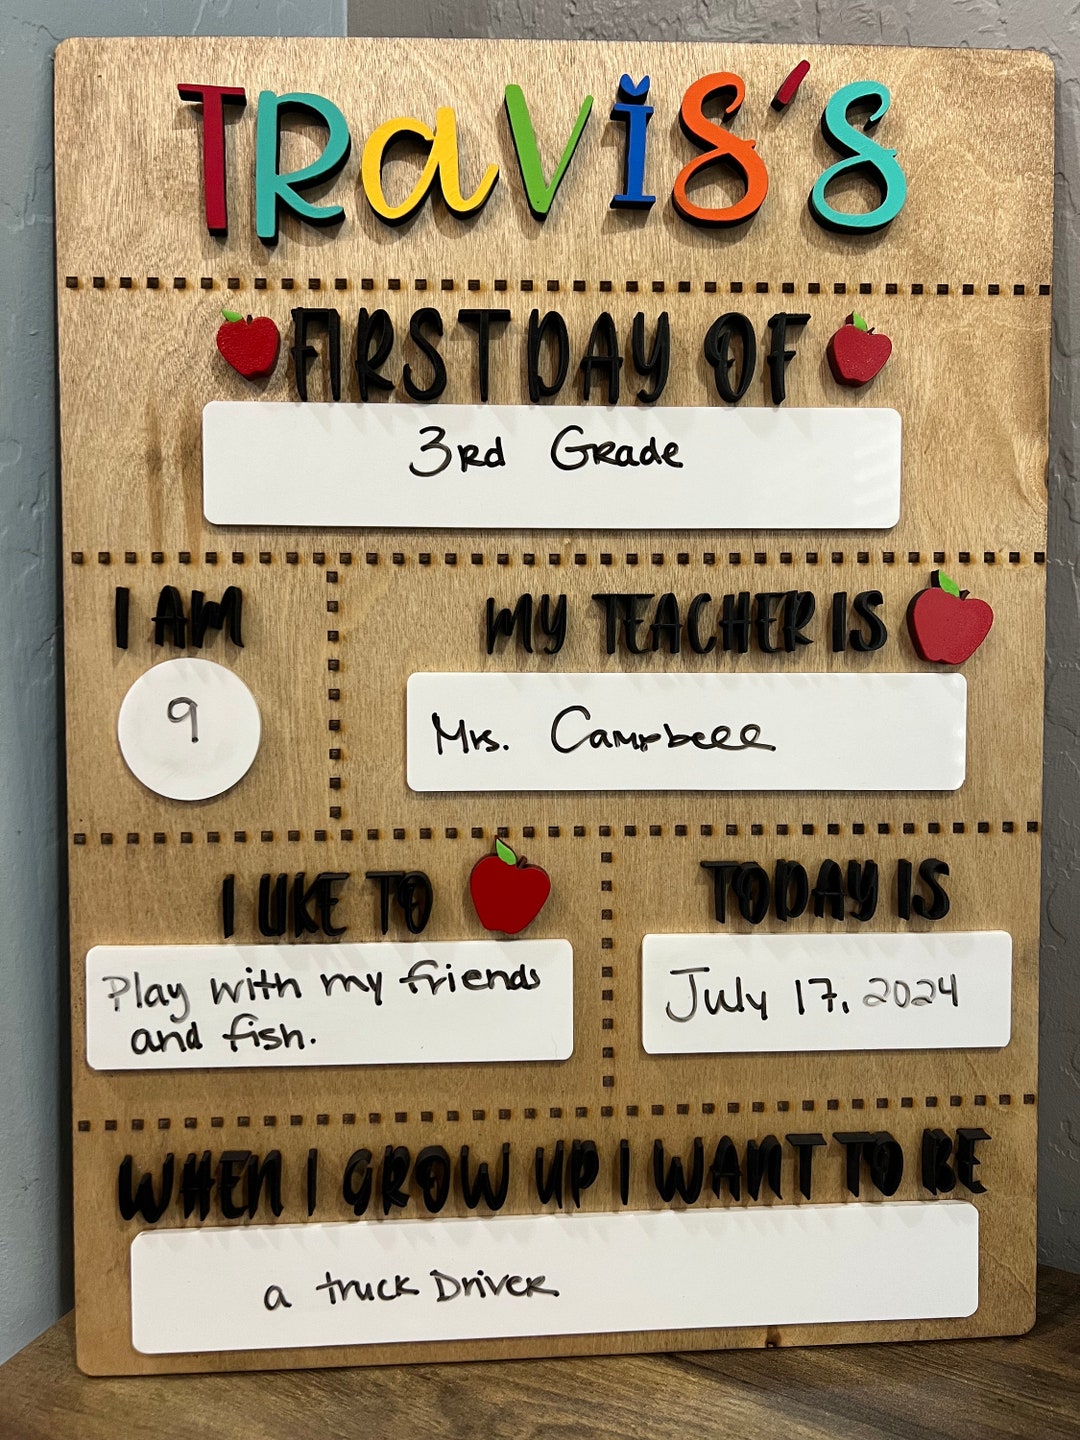 Travis's
FIRST DAY OF
3rd Grade
I AM
9
MY TEACHER IS
Mrs. Campbell
I LIKE TO
Play with my friends
and fish.
TODAY IS
July 17, 2024
WHEN I GROW UP I WANT TO BE
a truck Driver